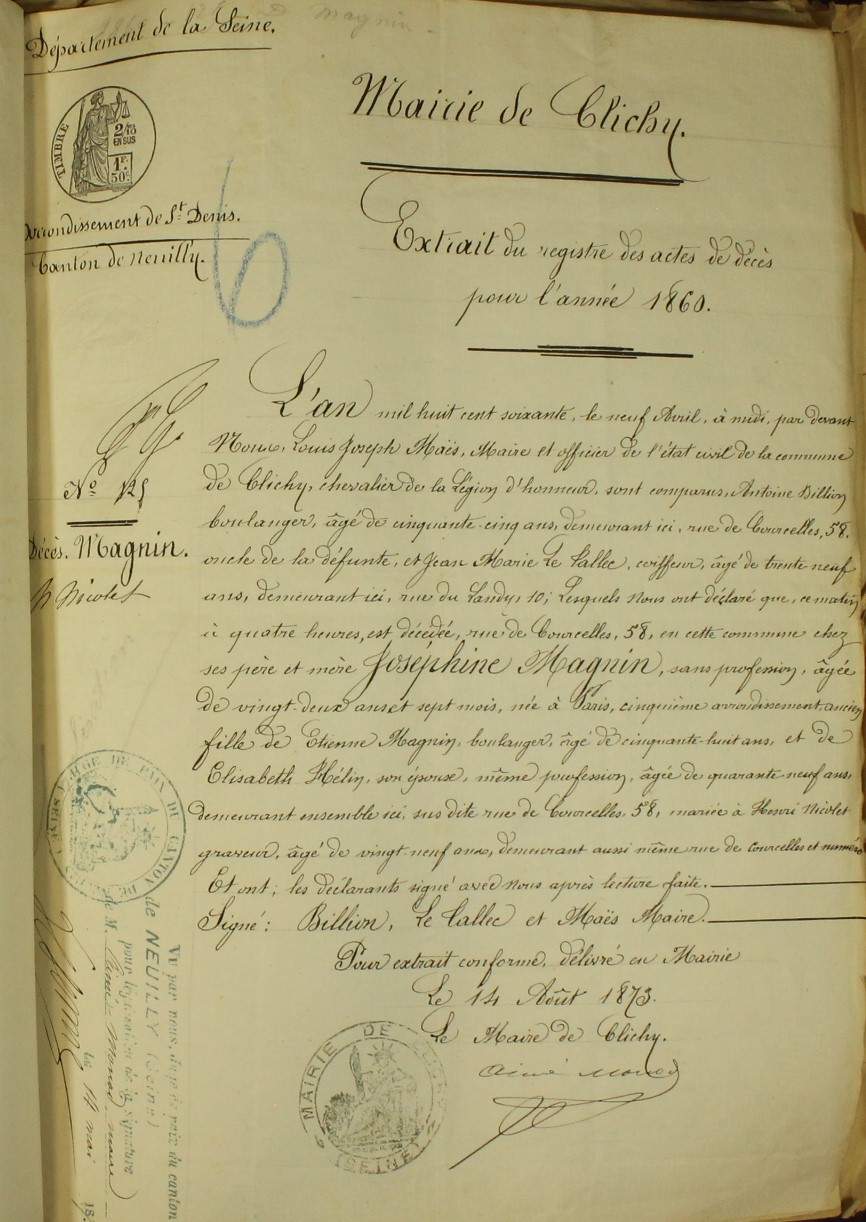 Département de la Seine.
TIMBRE
2/10
EN SUS
1F.
50c.
Arrondissement de St. Denis.
Canton de Neuilly.
6
Mairie de Clichy.
Extrait du registre des actes de décès
pour l'année 1860.
No 125
Décès. Magnin.
Nicolet
L'an mil huit cent soixante, le neuf Avril, à midi, par devant
Nous, Louis Joseph Maës, Maire et officier de l'état civil de la commune
de Clichy, chevalier de la Légion d'honneur, sont comparus, Antoine Billion
boulanger, âgé de cinquante-cinq ans, demeurant ici, rue de Courcelles, 58.
oncle de la défunte, et Jean Marie Le Callec, coiffeur, âgé de trente neuf
ans, demeurant ici, rue du Landy, 10; Lesquels Nous ont déclaré que, ce matin
à quatre heures, est décédée, rue de Courcelles, 58, en cette commune chez
ses père et mère Joséphine Magnin, sans profession, âgée
de vingt-deux ans et sept mois, née à Paris, cinquième arrondissement ancien
fille de Etienne Magnin, boulanger, âgé de cinquante-huit ans, et de
Elisabeth Hélin, son épouse, même profession, âgée de quarante-neuf ans,
demeurant ensemble ici, sus dite rue de Courcelles, 58, mariée à Henri Nicolet
graveur, âgé de vingt-neuf ans, demeurant aussi même rue de Courcelles et numéro
Et ont, les déclarants signé avec nous après lecture faite.
Signé: Billion, Le Callec et Maës Maire.
Pour extrait conforme, délivré en Mairie
Le 14 Août 1873.
Le Maire de Clichy.
Aimé
MAIRIE DE
(SEINE)
DE PAIX DU CANTON DE
Vu par nous, Juge de paix du canton
de NEUILLY (Seine)
pour légalisation de la signature
de M. Aimé maire
le 14 mai 18